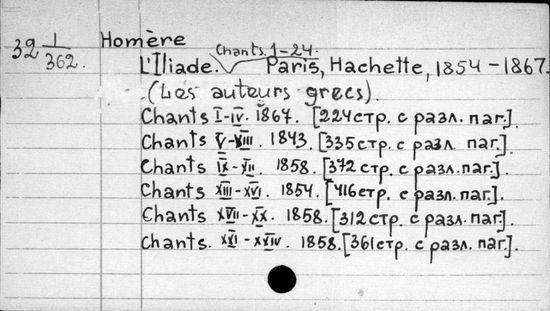 32 1/362. Homère
Chants. 1-24.
L'Iliade. Paris, Hachette, 1854-1867.
(Les auteurs grecs).
Chants I-IV. 1867. [224 стр. с разл. паг.].
Chants V-VIII. 1843. [335 стр. с разл. паг.].
Chants IX-XII. 1858. [372 стр. с разл. паг.].
Chants XIII-XVI. 1854. [416 стр. с разл. паг.].
Chants XVII-XX. 1858. [312 стр. с разл. паг.].
Chants. XXI-XXIV. 1858. [361 стр. с разл. паг.].